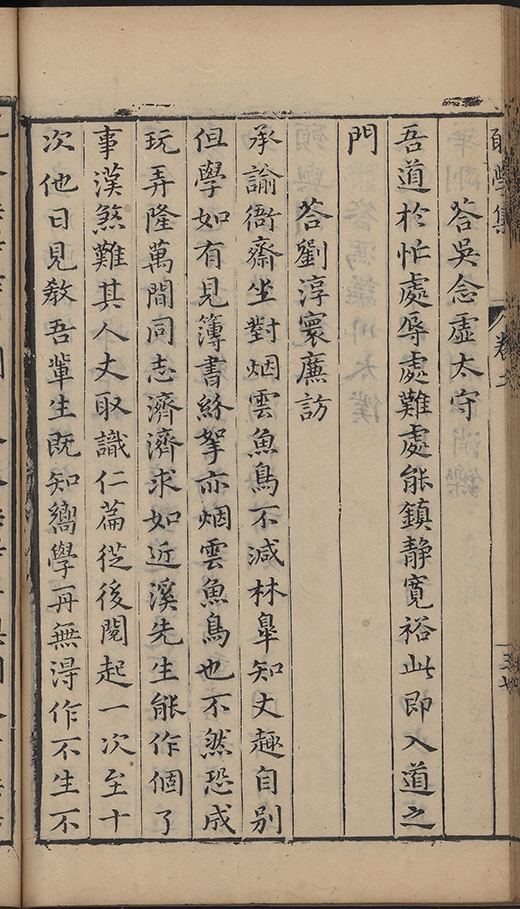 學集
卷之
荅吳念虛太守
吾道於忙處辱處難處能鎮静寛裕此即入道之
門
荅劉淳寰廉訪
承諭衙齋坐對烟雲魚鳥不減林臯知丈趣自别
但學如有見簿書紛拏亦烟雲魚鳥也不然恐成
玩弄隆萬間同志濟濟求如近溪先生能作個了
事漢煞難其人丈取識仁篇從後閱起一次至十
次他日見教吾輩生既知嚮學再無淂作不生不